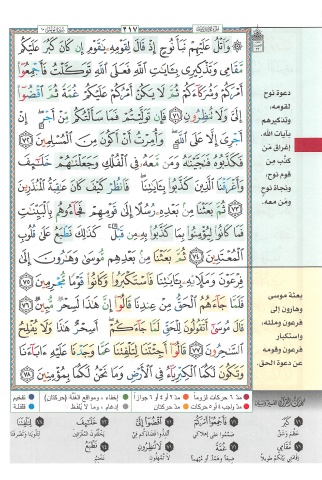 ٢١٧
۞ وَٱتْلُ عَلَيْهِمْ نَبَأَ نُوحٍ إِذْ قَالَ لِقَوْمِهِۦ يَٰقَوْمِ إِن كَانَ كَبُرَ عَلَيْكُم
مَّقَامِى وَتَذْكِيرِى بِـَٔايَٰتِ ٱللَّهِ فَعَلَى ٱللَّهِ تَوَكَّلْتُ فَأَجْمِعُوٓا۟
أَمْرَكُمْ وَشُرَكَآءَكُمْ ثُمَّ لَا يَكُنْ أَمْرُكُمْ عَلَيْكُمْ غُمَّةً ثُمَّ ٱقْضُوٓا۟
إِلَىَّ وَلَا تُنظِرُونِ ﴿٧١﴾ فَإِن تَوَلَّيْتُمْ فَمَا سَأَلْتُكُم مِّنْ أَجْرٍ إِنْ
أَجْرِىَ إِلَّا عَلَى ٱللَّهِ وَأُمِرْتُ أَنْ أَكُونَ مِنَ ٱلْمُسْلِمِينَ ﴿٧٢﴾
فَكَذَّبُوهُ فَنَجَّيْنَٰهُ وَمَن مَّعَهُۥ فِى ٱلْفُلْكِ وَجَعَلْنَٰهُمْ خَلَٰٓئِفَ
وَأَغْرَقْنَا ٱلَّذِينَ كَذَّبُوا۟ بِـَٔايَٰتِنَا فَٱنظُرْ كَيْفَ كَانَ عَٰقِبَةُ ٱلْمُنذَرِينَ
﴿٧٣﴾ ثُمَّ بَعَثْنَا مِنۢ بَعْدِهِۦ رُسُلًا إِلَىٰ قَوْمِهِمْ فَجَآءُوهُم بِٱلْبَيِّنَٰتِ
فَمَا كَانُوا۟ لِيُؤْمِنُوا۟ بِمَا كَذَّبُوا۟ بِهِۦ مِن قَبْلُ كَذَٰلِكَ نَطْبَعُ عَلَىٰ قُلُوبِ
ٱلْمُعْتَدِينَ ﴿٧٤﴾ ثُمَّ بَعَثْنَا مِنۢ بَعْدِهِم مُّوسَىٰ وَهَٰرُونَ إِلَىٰ
فِرْعَوْنَ وَمَلَإِي۟هِۦ بِـَٔايَٰتِنَا فَٱسْتَكْبَرُوا۟ وَكَانُوا۟ قَوْمًا مُّجْرِمِينَ ﴿٧٥﴾
فَلَمَّا جَآءَهُمُ ٱلْحَقُّ مِنْ عِندِنَا قَالُوٓا۟ إِنَّ هَٰذَا لَسِحْرٌ مُّبِينٌ ﴿٧٦﴾
قَالَ مُوسَىٰٓ أَتَقُولُونَ لِلْحَقِّ لَمَّا جَآءَكُمْ أَسِحْرٌ هَٰذَا وَلَا يُفْلِحُ
ٱلسَّٰحِرُونَ ﴿٧٧﴾ قَالُوٓا۟ أَجِئْتَنَا لِتَلْفِتَنَا عَمَّا وَجَدْنَا عَلَيْهِ ءَابَآءَنَا
وَتَكُونَ لَكُمَا ٱلْكِبْرِيَآءُ فِى ٱلْأَرْضِ وَمَا نَحْنُ لَكُمَا بِمُؤْمِنِينَ ﴿٧٨﴾
دعوة نوح
لقومه،
وتذكيرهم
بآيات الله.
إغراق من
كذّب من
قوم نوح،
ونجاة نوح
ومن معه.
بعثة موسى
وهارون إلى
فرعون وملئه،
واستكبار
فرعون وقومه
عن دعوة الحق.
مد ٦ حركات لزوماً
مد ٢ أو ٤ أو ٦ جوازاً
إخفاء، ومواقع الغنّة (حركتان)
تفخيم
مد واجب ٤ أو ٥ حركات
مد حركتان
إدغام، وما لا يُلفظ
قلقلة